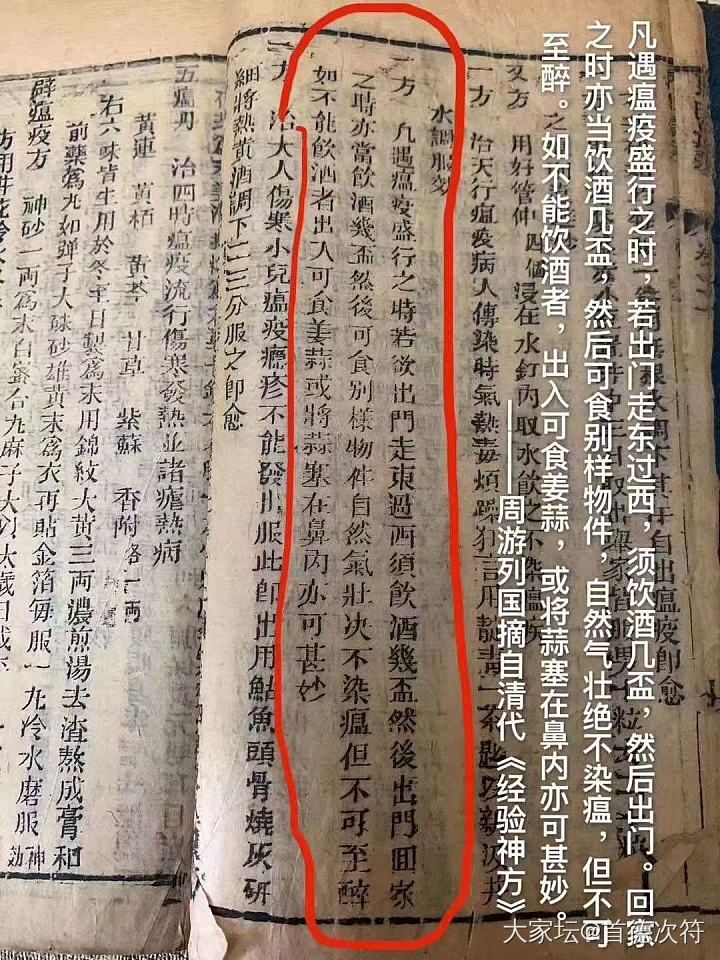 凡遇瘟疫盛行之时，若出门走东过西，须饮酒几盃，然后出门。回家
之时亦当饮酒几盃，然后可食别样物件，自然气壮绝不染瘟，但不可
至醉。如不能饮酒者，出入可食姜蒜，或将蒜塞在鼻内亦可甚妙。
——周游列国摘自清代《经验神方》
又方　用好管仲四個浸在水缸內取水飲之不染瘟疾
一方　治天行瘟疫病人傳染時氣熱毒煩躁狂言用靛青一茶匙以新汲井
水調服妙
一方　凡遇瘟疫盛行之時若欲出門走東過西須飲酒幾盃然後出門回家
之時亦當飲酒幾盃然後可食別樣物件自然氣壯决不染瘟但不可至醉
如不能飲酒者出入可食姜蒜或將蒜塞在鼻內亦可甚妙
一方　治大人傷寒小兒瘟疫癮疹不能發出服此卽出用鮎魚頭骨燒灰研
細將熱黃酒調下二三分服之卽愈
五瘟丹　治四時瘟疫流行傷寒發熱並諸瘧熱病
黃連　黃栢　黃芩　甘草　紫蘇　香附各一兩
右六味皆生用於冬至日製爲末用錦紋大黃三兩濃煎湯去渣熬成膏和
前藥爲丸如彈子大硃砂雄黃末爲衣再貼金箔每服一丸冷水磨服神効
辟瘟疫方　神砂一兩爲末白蜜合丸麻子大
大家坛@首德次符